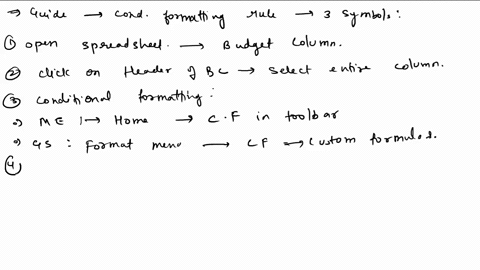 → Guide → Cond. formatting rule → 3 symbols:
① open spreadsheet. → Budget column.
② click on Header of BC → select entire column.
③ conditional formatting:
•) ME |→ Home → C.F in toolbar
•) GS : Format menu → CF → Custom formulas.
④